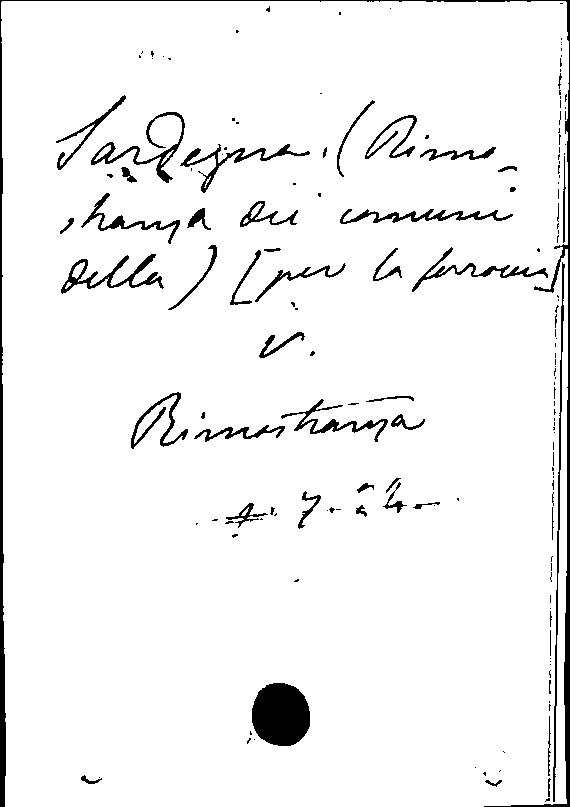 Sardegna. (Rimo-
stranza dei comuni
della) [per la ferrovia]
v.
Rimostranza